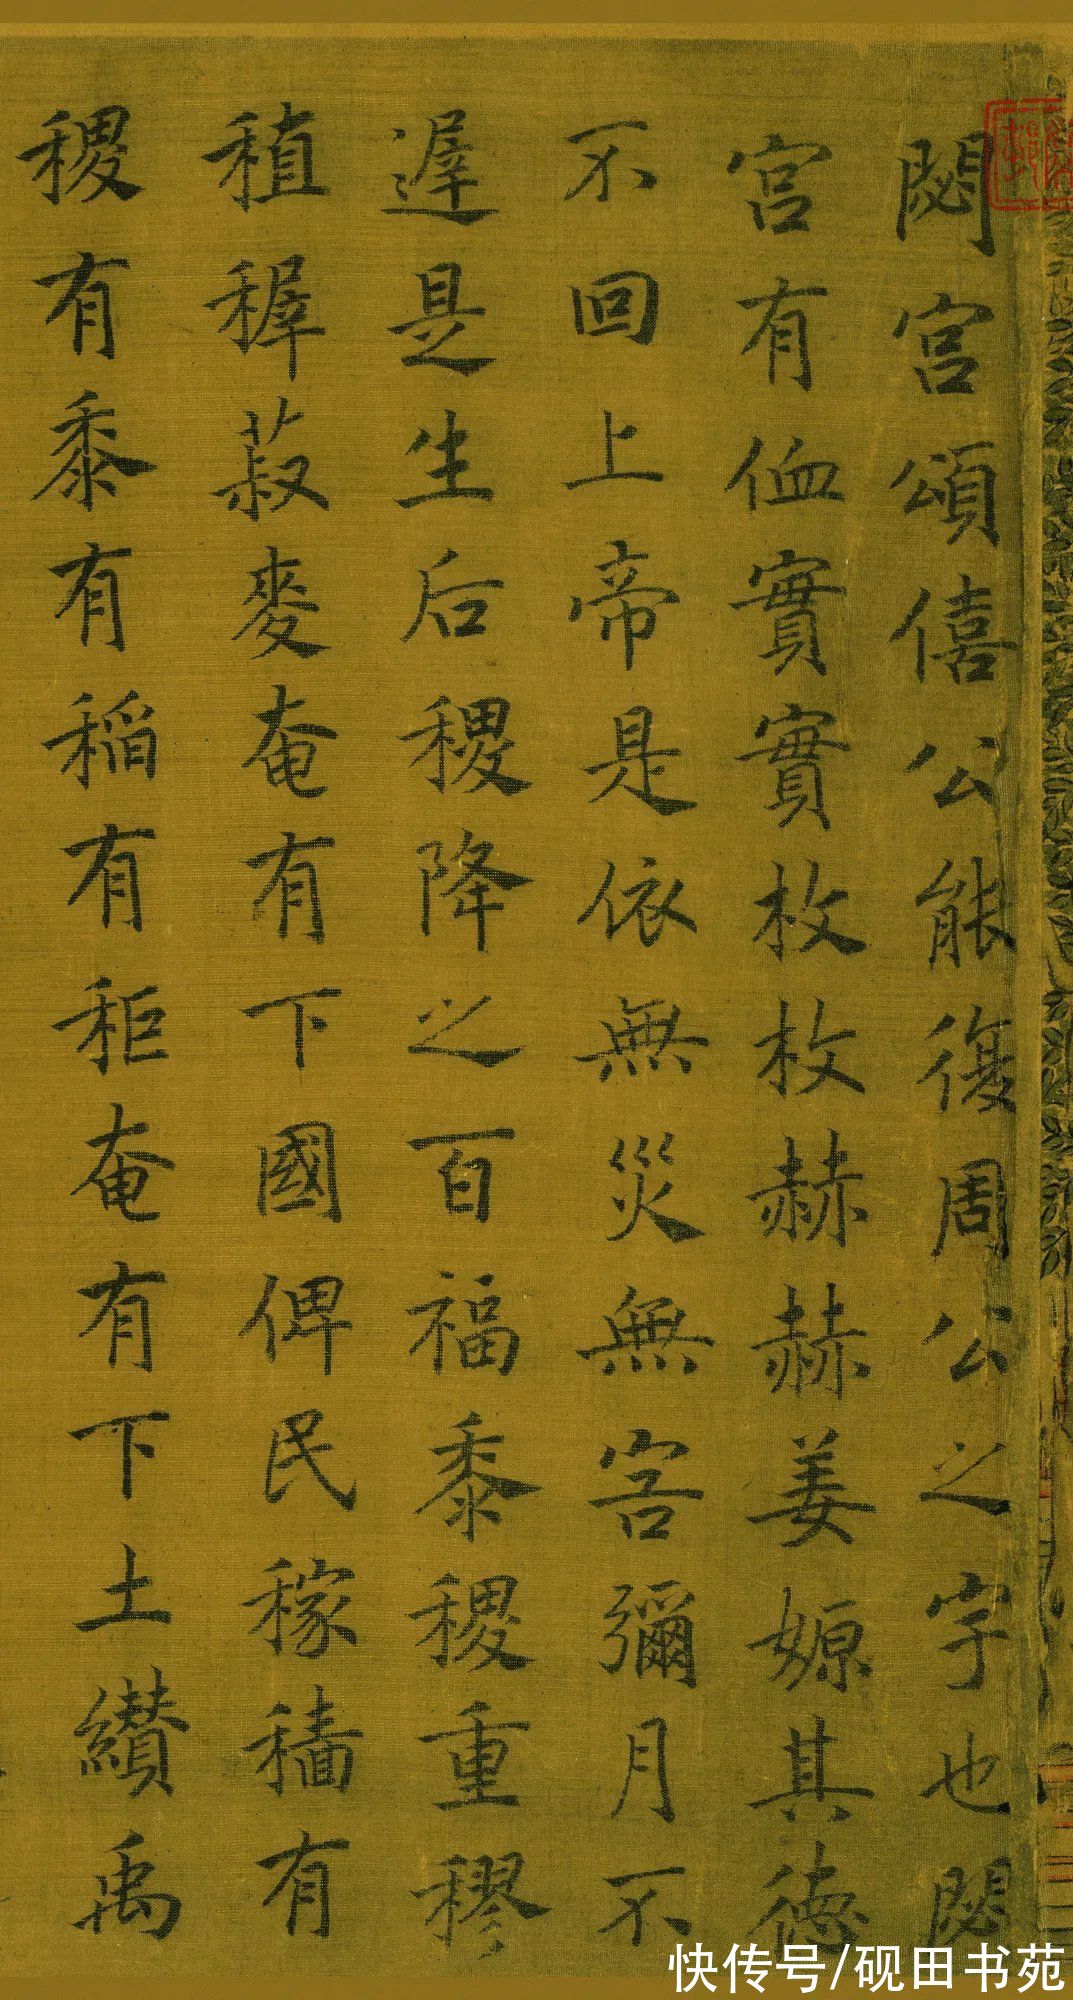 閟宮頌僖公能復周公之宇也閟
宮有侐實實枚枚赫赫姜嫄其德
不回上帝是依無災無害彌月不
遲是生后稷降之百福黍稷重穋
稙稺菽麥奄有下國俾民稼穡有
稷有黍有稻有秬奄有下土纘禹
快传号/砚田书苑